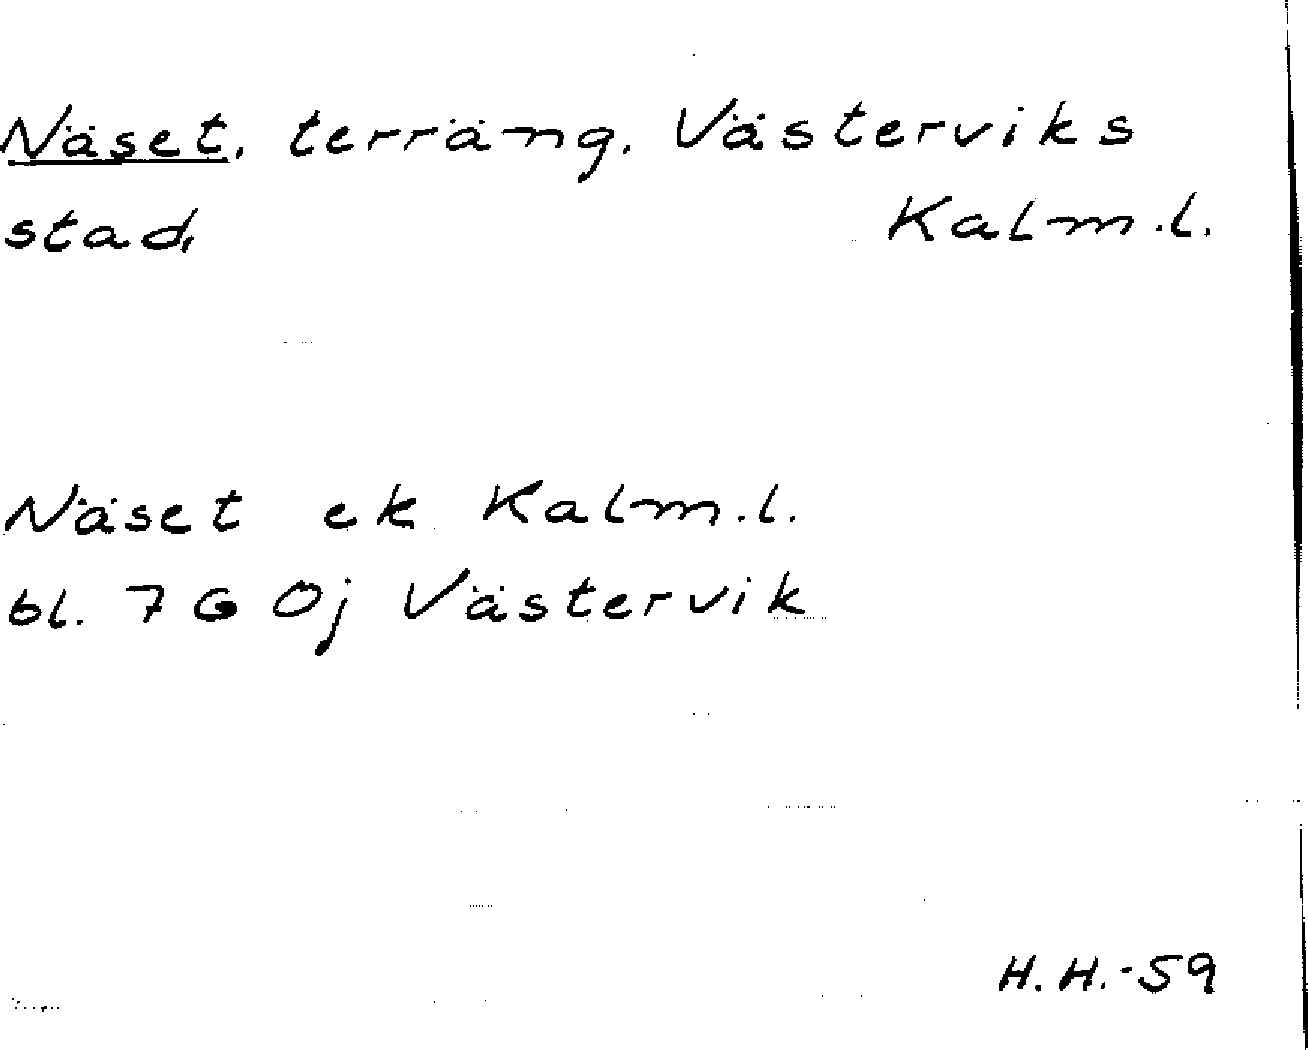 Näset, terräng, Västerviks
stad, Kalm.l.
Näset ek Kalm.l.
bl. 7 G 0j Västervik
H.H.-59